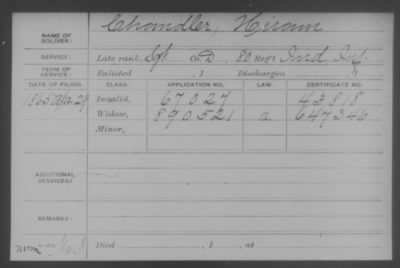 NAME OF SOLDIER: Chandler, Hiram
SERVICE: Late rank, Sgt Co. D, 80 Reg't Ind. Inf
TERM OF SERVICE: Enlisted , 1 Discharged , 1
DATE OF FILING. CLASS. APPLICATION NO. LAW. CERTIFICATE NO.
1865 Apr 29 Invalid, 67027 43818
Widow, 890521 a 647346
Minor,
ADDITIONAL SERVICES:
REMARKS:
Died , 1 , at